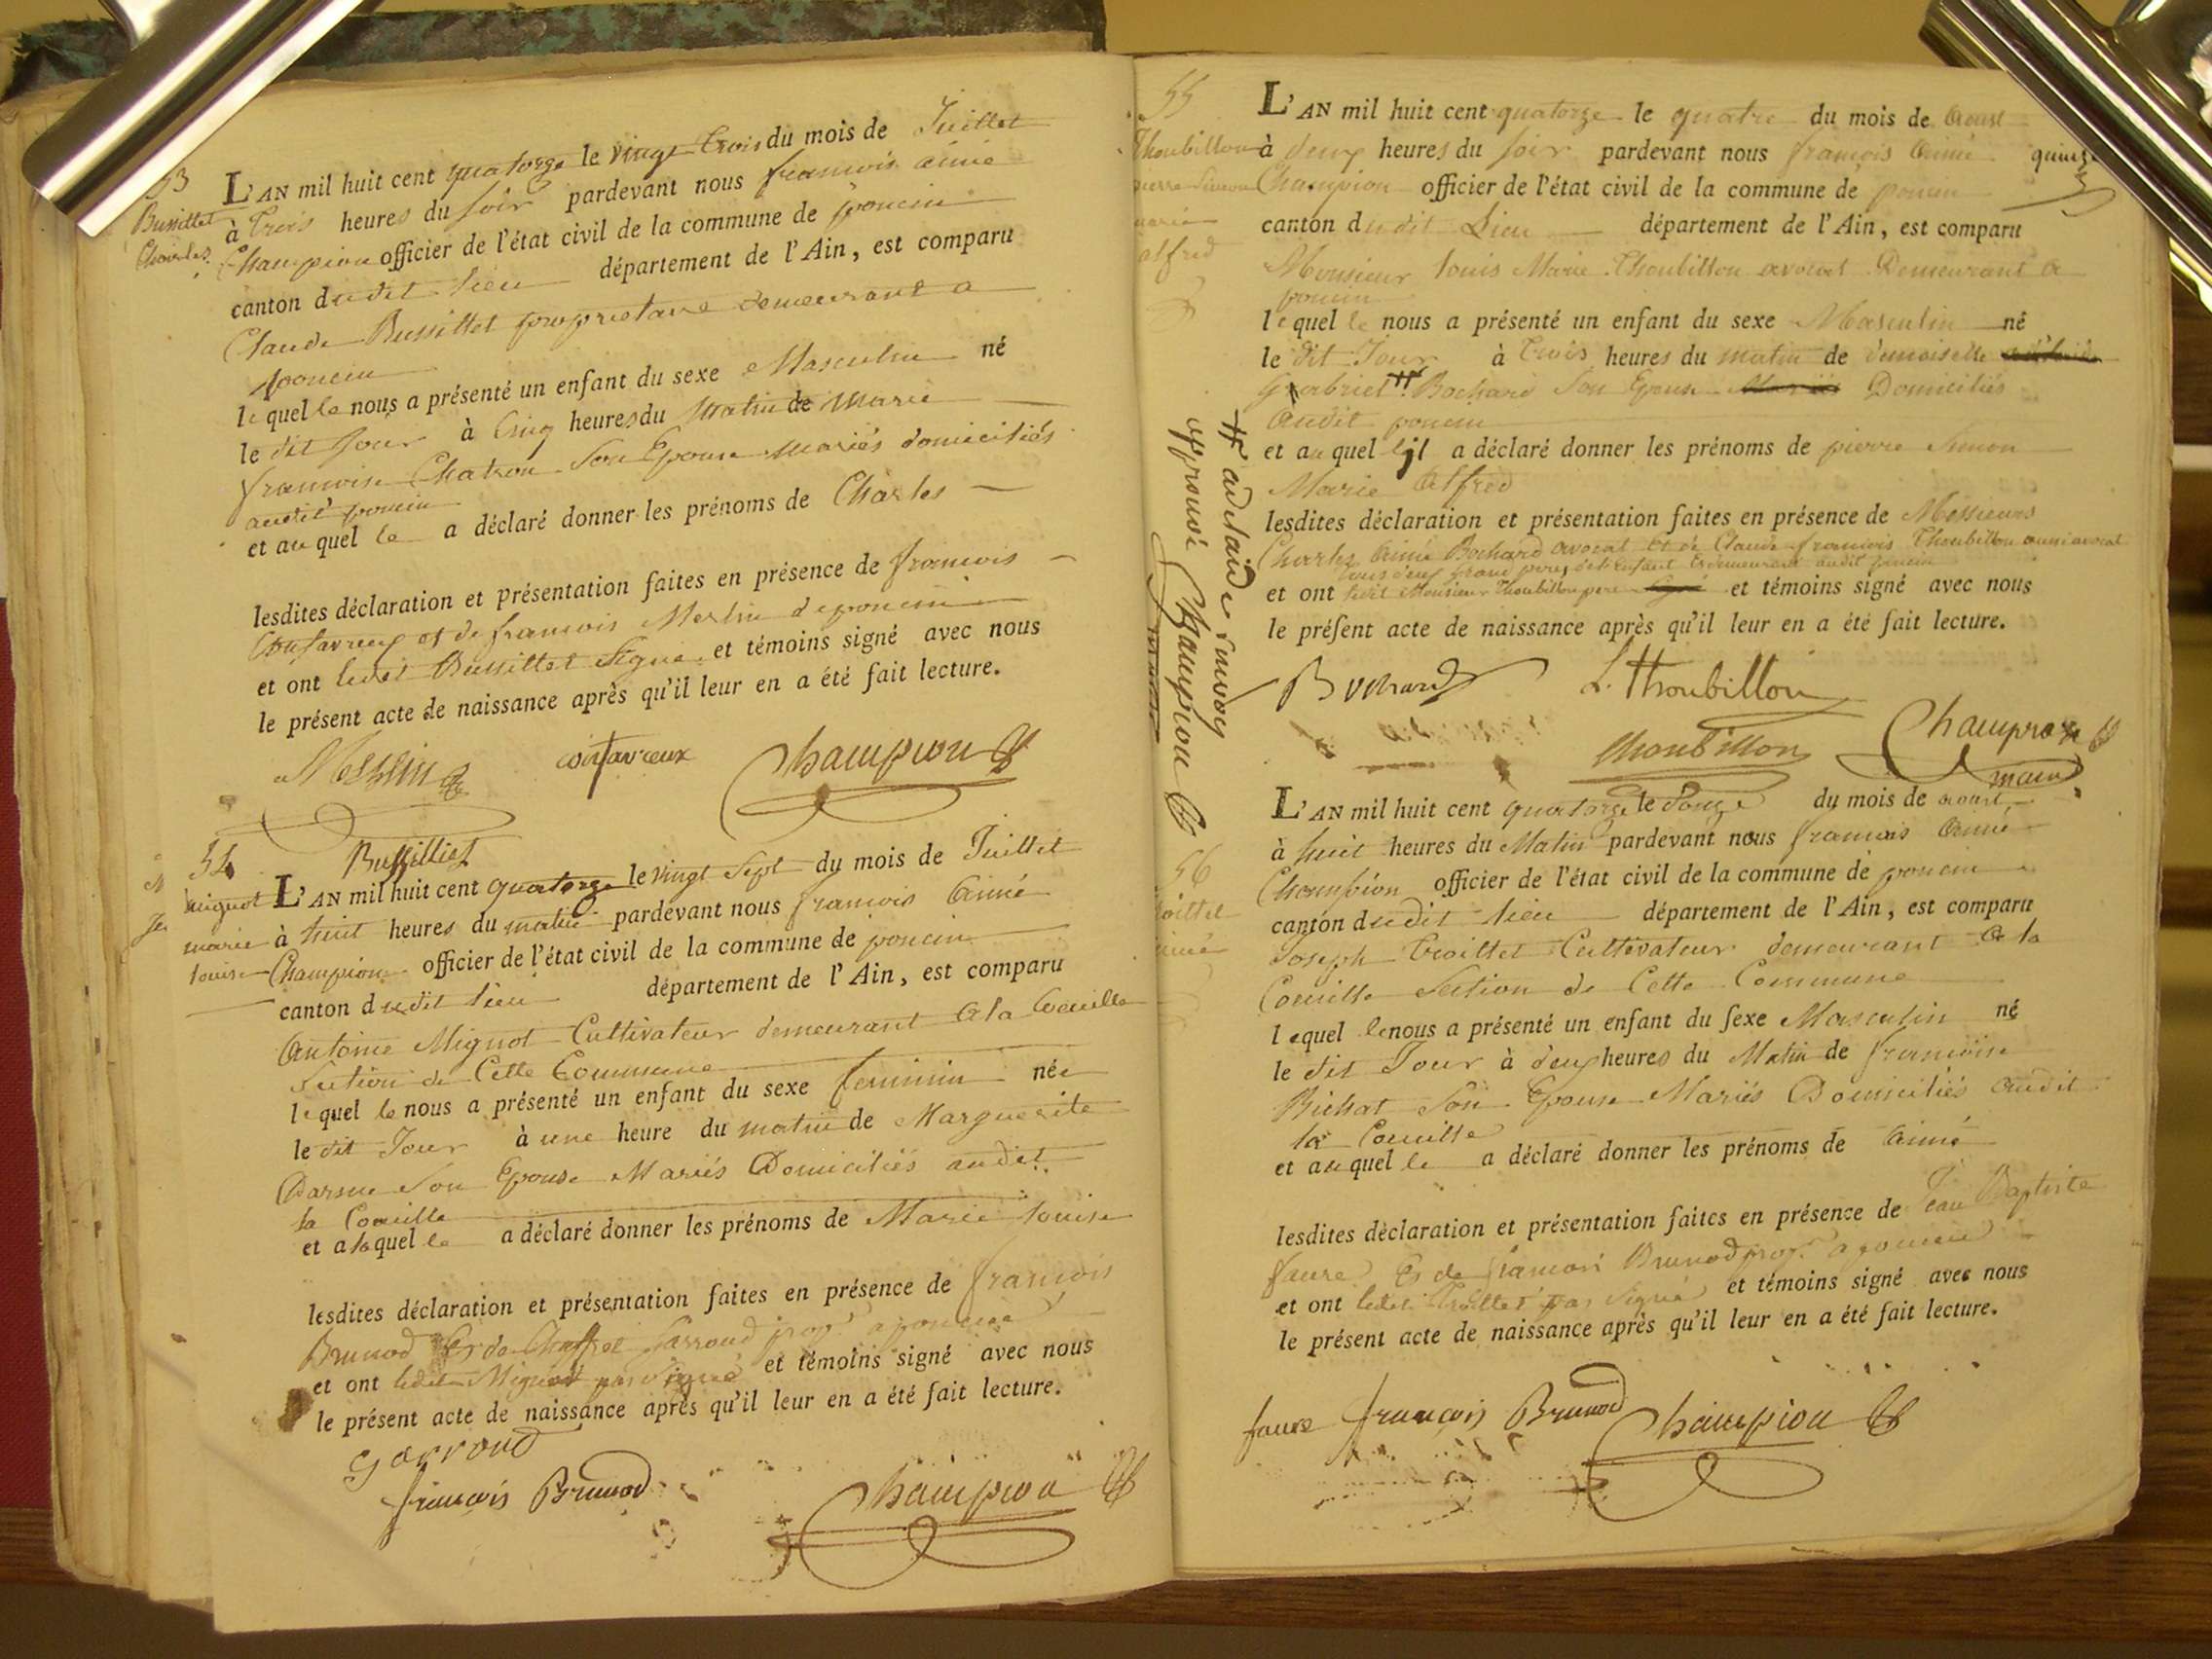 53
Bussillet
Charles
L'AN mil huit cent quatorze le vingt trois du mois de Juillet
à trois heures du soir pardevant nous francois aimé
Champion officier de l'état civil de la commune de poncin
canton dudit lieu département de l'Ain, est comparu
Claude Bussillet proprietaire demeurant a
poncin
lequel le nous a présenté un enfant du sexe Masculin né
le dit Jour à Cinq heures du Matin de Marie
francoise Chatron Son Epouse mariés domiciliés
audit poncin
et auquel le a déclaré donner les prénoms de Charles
lesdites déclaration et présentation faites en présence de francois
Contavreux et de francois Merlin de poncin
et ont ledit Bussillet Signé et témoins signé avec nous
le présent acte de naissance après qu'il leur en a été fait lecture.
Merlin contavreux Champion
Bussilliet
54
Mignot
marie
louise
L'AN mil huit cent quatorze le vingt Sept du mois de Juillet
à huit heures du matin pardevant nous francois Aimé
Champion officier de l'état civil de la commune de poncin
canton dudit lieu département de l'Ain, est comparu
Antoine Mignot Cultivateur demeurant A la Coeuille
Section de Cette Commune
lequel le nous a présenté un enfant du sexe feminin née
le dit Jour à une heure du matin de Marguerite
Darme Son Epouse Mariés Domiciliés audit
la Coeuille
et alaquel le a déclaré donner les prénoms de Marie louise
lesdites déclaration et présentation faites en présence de francois
Brunod Et de Garroud prop.re a poncin
et ont ledit Mignot pas signé et témoins signé avec nous
le présent acte de naissance après qu'il leur en a été fait lecture.
Garroud
francois Brunod Champion
55
Thoubillon
pierre Simon
marie
alfred
L'AN mil huit cent quatorze le quatre du mois de Aoust
à deux heures du soir pardevant nous francois Aimé quinze
Champion officier de l'état civil de la commune de poncin
canton dudit Lieu département de l'Ain, est comparu
Monsieur louis Marie Thoubillon avocat Demeurant a
poncin
lequel le nous a présenté un enfant du sexe Masculin né
le dit Jour à trois heures du matin de demoiselle
gabriel Bochard Son Epouse Domiciliés
Audit poncin
et auquel il a déclaré donner les prénoms de pierre Simon
Marie Alfred
lesdites déclaration et présentation faites en présence de Messieurs
Charles Aimé Bochard avocat Et de Claude francois Thoubillon aussi avocat
tous deux grand peres dudit Enfant Et demeurant audit poncin
et ont ledit Monsieur Thoubillon pere et témoins signé avec nous
le présent acte de naissance après qu'il leur en a été fait lecture.
adelaide renvoy
approuvé Champion
Bochard L. Thoubillon
Thoubillon Champion
maire
56
aimé
L'AN mil huit cent quatorze le douze du mois de aoust
à huit heures du Matin pardevant nous francois Aimé
Champion officier de l'état civil de la commune de poncin
canton dudit lieu département de l'Ain, est comparu
Joseph troillet Cultivateur demeurant A la
Coeuille Section de Cette Commune
lequel le nous a présenté un enfant du sexe Masculin né
le dit Jour à deux heures du Matin de francoise
Bichat Son Epouse Mariés Domiciliés audit
la Coeuille
et auquel le a déclaré donner les prénoms de Aimé
lesdites déclaration et présentation faites en présence de Jean Baptiste
faure Et de francois Brunod prop.re a poncin
et ont ledit troillet pas signé et témoins signé avec nous
le présent acte de naissance après qu'il leur en a été fait lecture.
faure francois Brunod Champion